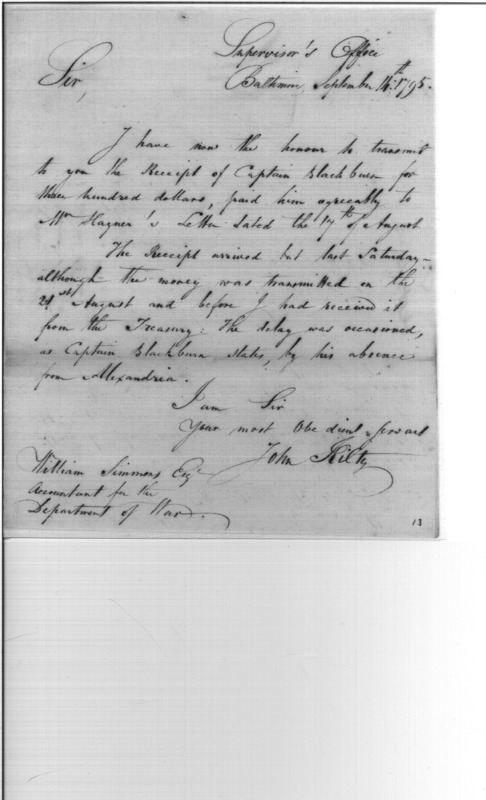 Supervisor's Office
Sir,
Baltimore, September 14th 1795.
I have now the honour to transmit
to you the Receipt of Captain Blackburn for
three hundred dollars, paid him agreeably to
Mr Hagner's Letter dated the 17th of August
The Receipt arrived but last Saturday—
although the money was transmitted on the
21st August and before I had received it
from the Treasury: The delay was occasioned,
as Captain Blackburn states, by his absence
from Alexandria.
I am Sir
Your most Obedient servant
John Kilty
William Simmons Esqr
Accountant for the
Department of War.
13